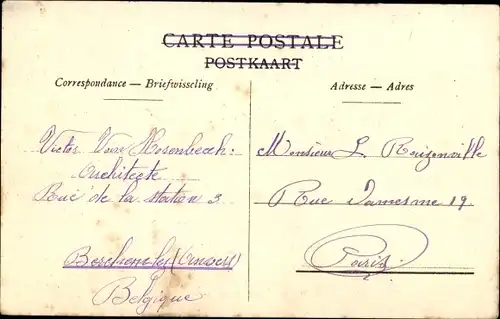 CARTE POSTALE
POSTKAART
Correspondance — Briefwisseling
Victor Van Hosenbeeck:
Architecte
Rue de la station 3
Berchem lg (Anvers)
Belgique
Adresse — Adres
Monsieur L.
Rue Damesme 19
Paris